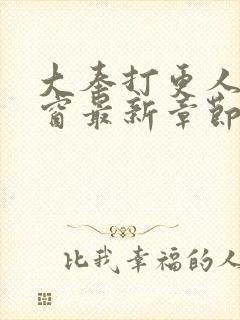 大奉打更人
窗最新章節
比我幸福的人